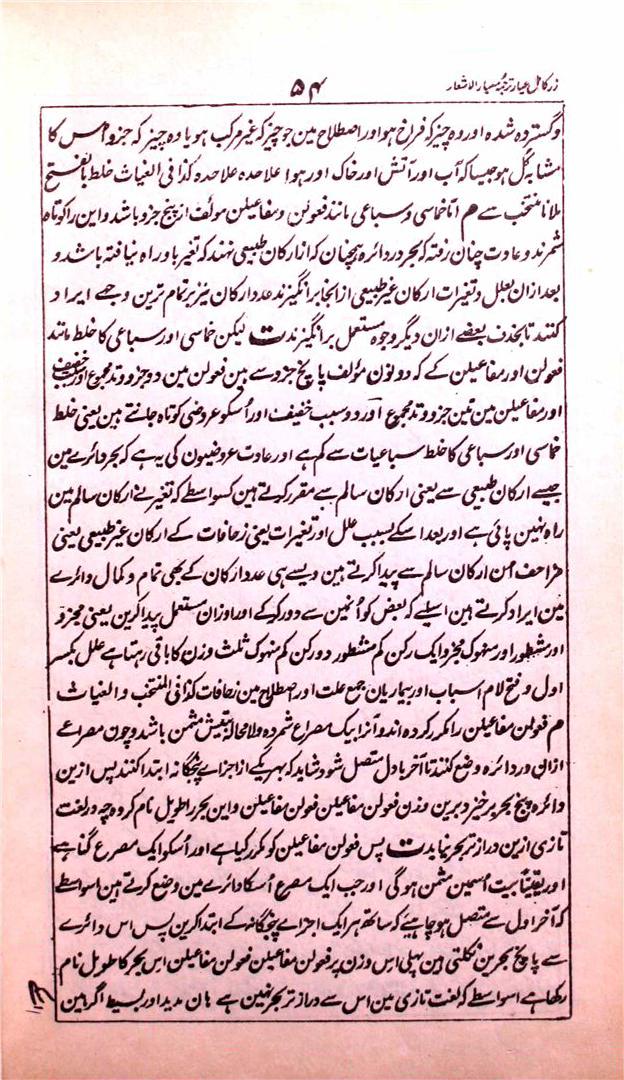 زر کامل عیار ترجمۂ معیار الاشعار
۵۴
وگستردہ شدہ اور وہ چیز کہ فراخ ہو اور اصطلاح مین جو چیز کہ غیر مرکب ہو یا وہ چیز کہ جزو اس کا
مشابہ کل ہو جیسا کہ آب اور آتش اور خاک اور ہوا علاحدہ علاحدہ کذا فی الغیاث خلط بالفتح
ملانا منتخب سے هم اتا خماسی و سباعی مانند فعولن و مفاعیلن مولف از پنج جزو باشد و این را کوتاہ
شمرند و عادت چنان رفتہ کہ بحر در دائرہ ہمچنان کہ از ارکان طبیعی نہند کہ تغیر باور اہ نیافتہ باشد و
بعد ازان بعلل و تغیرات ارکان غیر طبیعی از انجا برانگیزند عدد ارکان نیز بر تمام ترین وجہے ایراد
کنند تا بحذف بعضے ازان دیگر وجوہ مستعمل برانگیزند ت لیکن خماسی اور سباعی کا خلط مانند
فعولن اور مفاعیلن کے کہ دونون مؤلف پانچ جزو سے ہین فعولن مین دو جزو وتد مجموع اور سبب خفیف
اور مفاعیلن مین تین جزو وتد مجموع اور دو سبب خفیف اور اُسکو عروضی کوتاہ جانتے ہین یعنی خلط
خماسی اور سباعی کا خلط سباعیات سے کم ہے اور عادت عروضیون کی یہ ہے کہ بحر دائرے مین
جیسے ارکان طبیعی سے یعنی ارکان سالم سے مقرر کرتے ہین کسواسطے کہ تغیر نے ارکان سالم مین
راہ نہین پائی ہے اور بعد اسکے بسبب علل اور تغیرات یعنی زحافات کے ارکان غیر طبیعی یعنی
مزاحف اُن ارکان سالم سے پیدا کرتے ہین ویسے ہی عدد ارکان کے بھی تمام و کمال دائرے
مین ایراد کرتے ہین اسلیے کہ بعض کو اُنمین سے دور کرکے اور اوزان مستعمل پیدا کرین یعنی مجزو
اور مشطور اور منہوک مجزو ایک رکن کم مشطور دو رکن کم منہوک ثلث وزن کا باقی رہتا ہے علل بکسر
اول و فتح لام اسباب اور بیماریان جمع علت اور اصطلاح مین زحافات کذا فی المنتخب و الغیاث
هم فعولن مفاعیلن را مکرر کردہ اند و آنرا یک مصراع شمردہ و لامحالہ بیتش مثمن باشد و چون مصراعے
ازان در دائرہ وضع کنند تا آخر باول متصل شود شاید کہ بہر یکے از اجزاے پنجگانہ ابتدا کنند پس ازین
دائرہ پنج بحر برخیزد برین وزن فعولن مفاعیلن فعولن مفاعیلن و این بحر را طویل نام کردہ چہ در لغت
تازی ازین دراز تر بحر نیابد ت پس فعولن مفاعیلن کو مکرر کیا ہے اور اُسکو ایک مصرع گنا ہے
اور یقیناً بیت اسمین مثمن ہوگی اور جب ایک مصرع اُسکا دائرے مین وضع کرتے ہین اسواسطے
کہ آخر اول سے متصل ہو چاہیے کہ ساتھ ہر ایک اجزاے پنجگانہ کے ابتدا کرین پس اس دائرے
سے پانچ بحرین نکلتی ہین پہلی اس وزن پر فعولن مفاعیلن فعولن مفاعیلن اس بحر کا طویل نام
رکھا ہے اسواسطے کہ لغت تازی مین اس سے دراز تر بحر نہین ہے ہان مدید اور بسیط اگر ہین